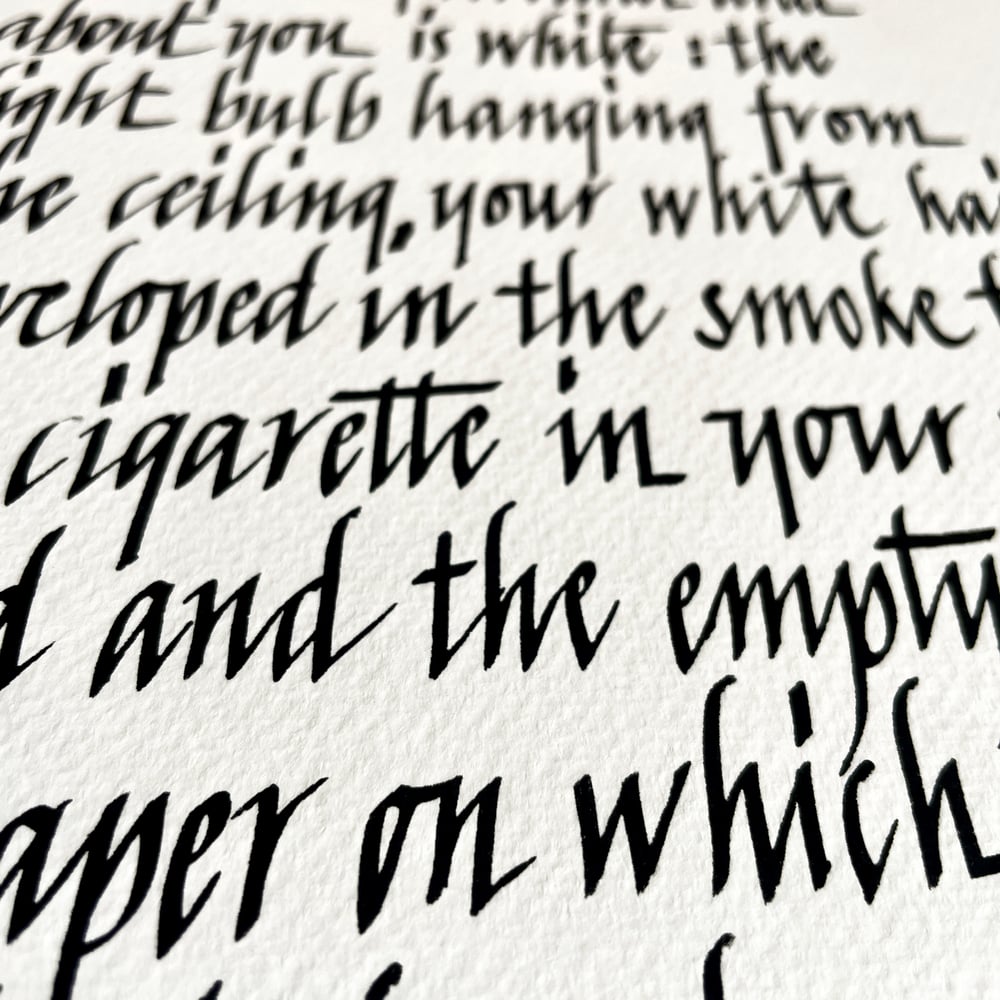 about you is white : the
ight bulb hanging from
he ceiling, your white hai
veloped in the smoke t
cigarette in your
d and the empty
aper on which